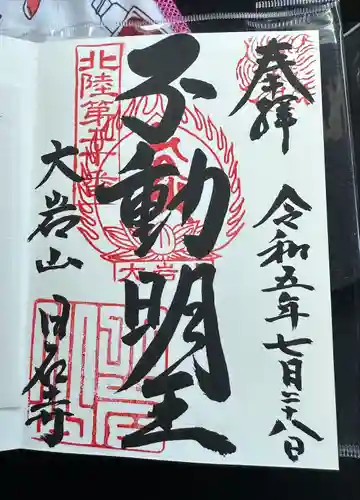 奉拝
令和五年七月二十八日
不動明王
北陸第十番
大岩
大岩山
日石寺